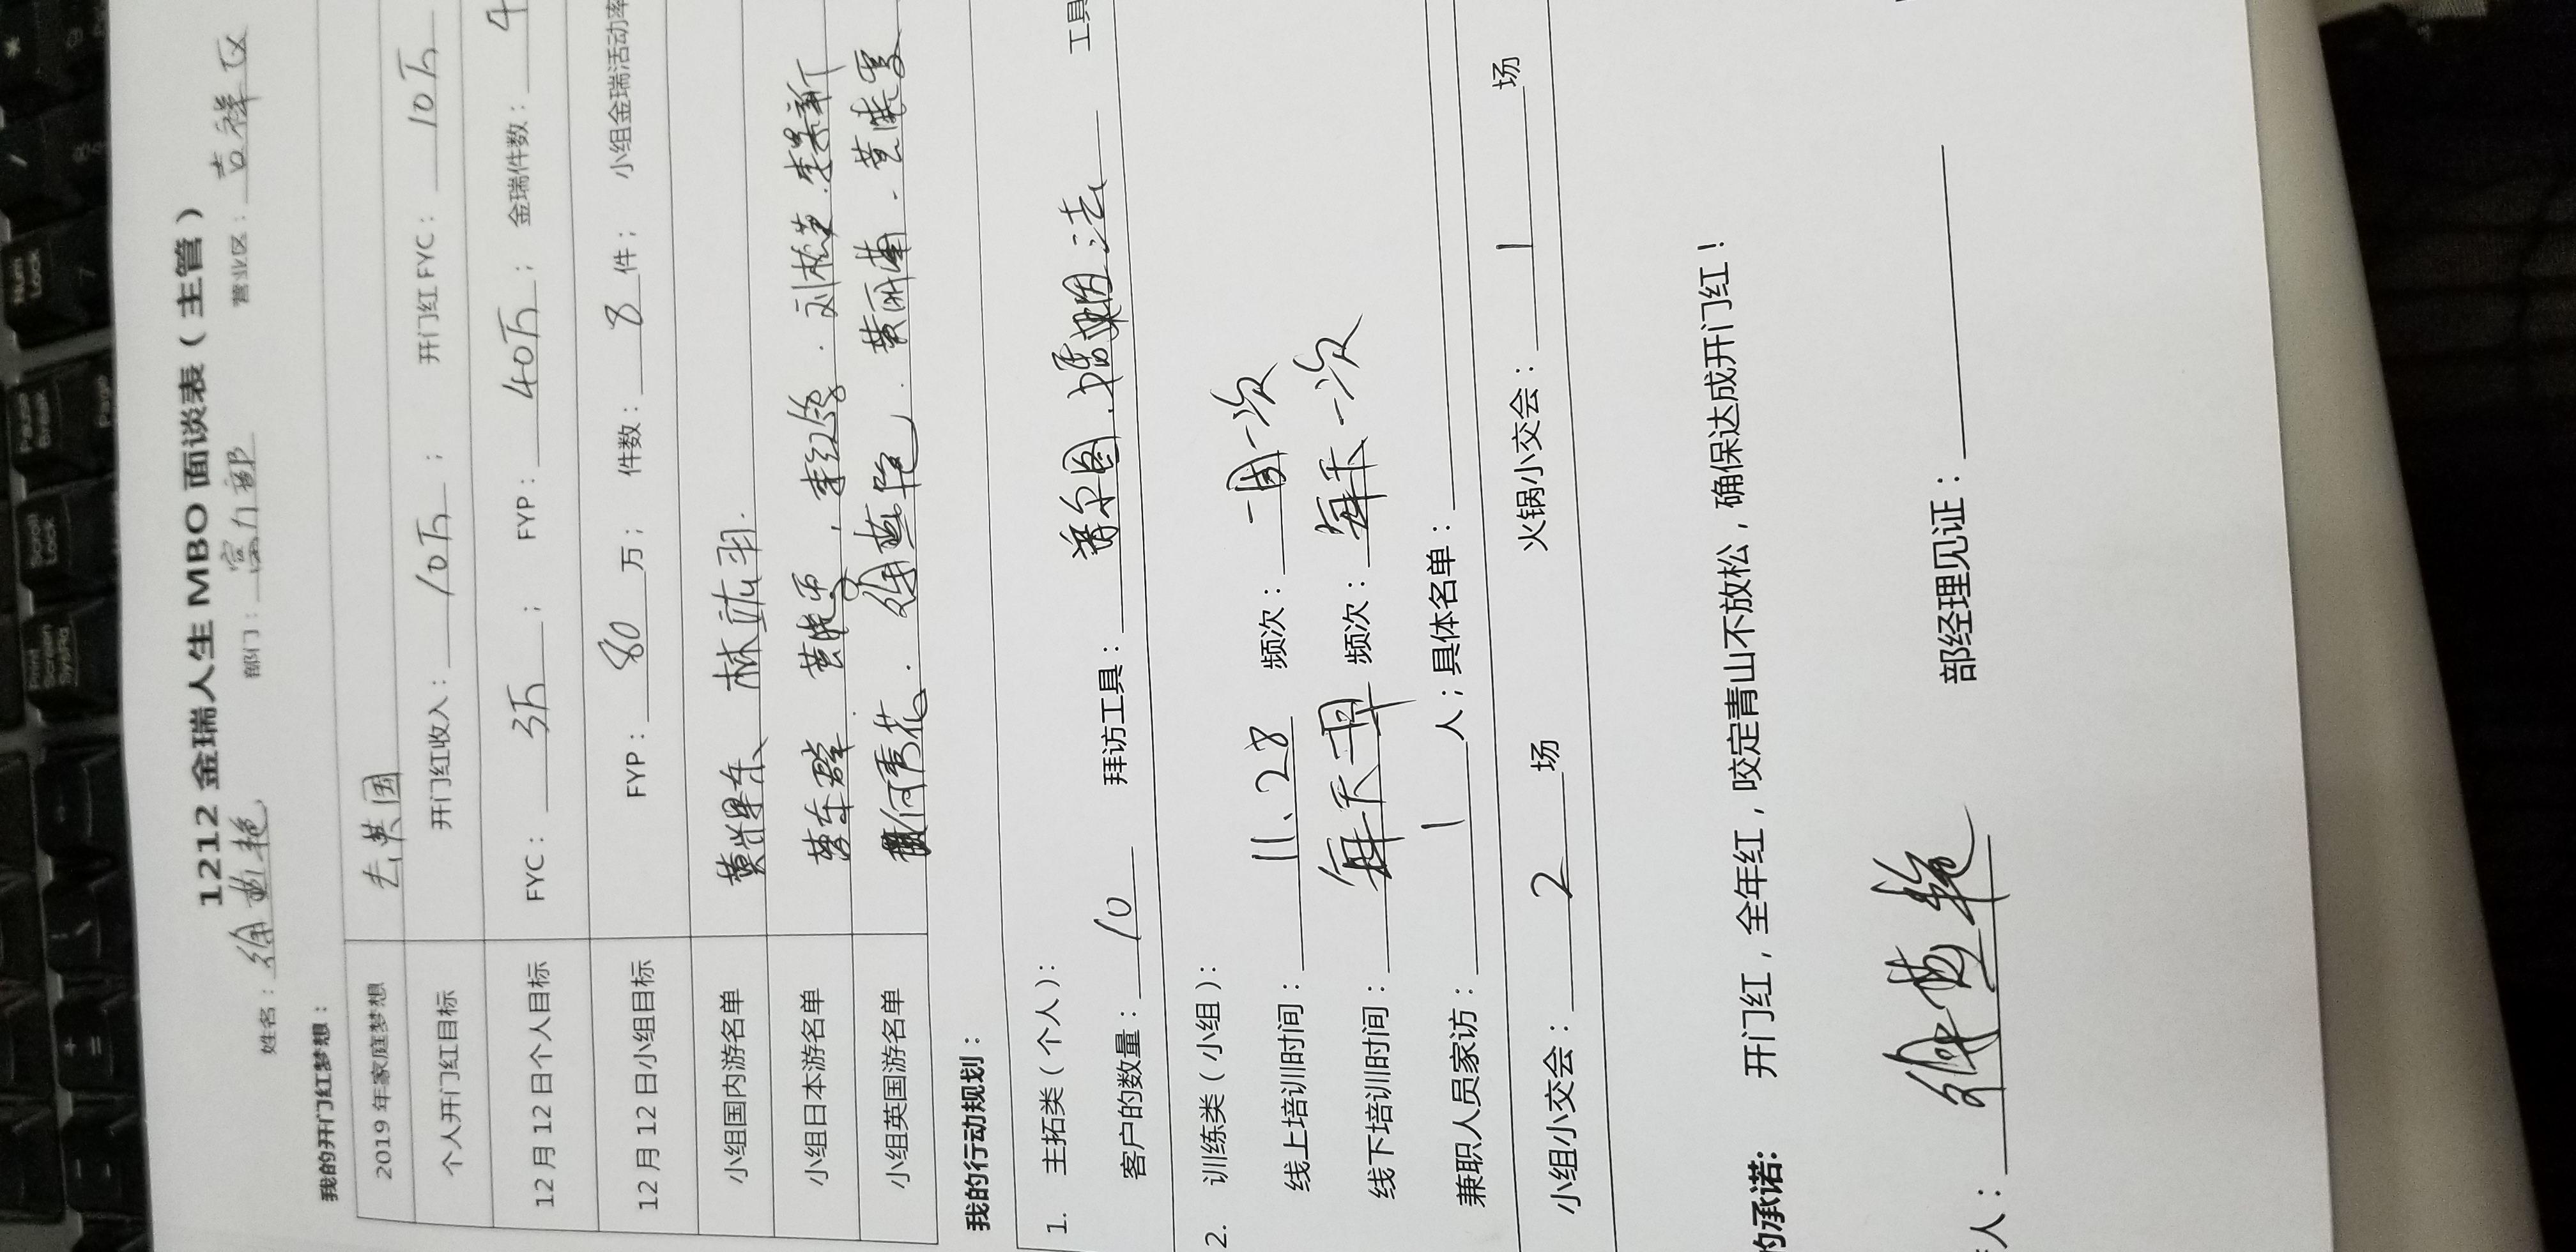 1212 金瑞人生 MBO 面谈表（主管）
姓名： 徐燕艳 部门： 富力部 营业区： 吉祥区
我的开门红梦想：
2019 年家庭梦想 去英国
个人开门红目标 开门红收入： 10万 ； 开门红 FYC： 10万
12 月 12 日个人目标 FYC： 3万 ； FYP： 40万 ； 金瑞件数： 4
12 月 12 日小组目标 FYP： 80 万； 件数： 8 件； 小组金瑞活动率
小组国内游名单 林
小组日本游名单 刘 李
小组英国游名单 何秀花． 徐燕艳． 黄丽
我的行动规划：
1. 主拓类（个人）：
客户的数量： 10 拜访工具： 图． 法 工具
2. 训练类（小组）：
线上培训时间： 11、28 频次： 一周一次
线下培训时间： 每天早 频次： 每天一次
兼职人员家访： 1 人；具体名单：
小组小交会： 2 场 火锅小交会： 1 场
的承诺: 开门红，全年红，咬定青山不放松，确保达成开门红！
人： 徐燕艳 部经理见证：
Print Screen SysRq
Scroll Lock
Pause Break
Num Lock
7